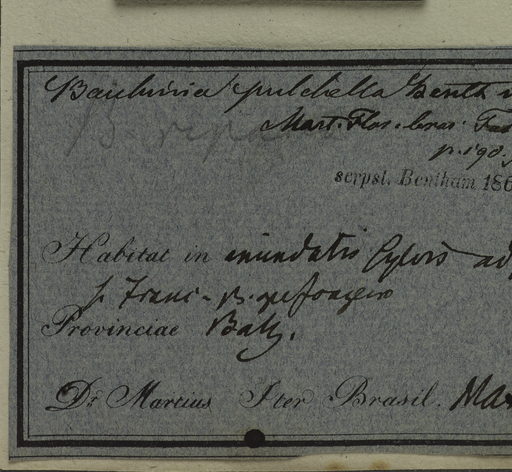 Bauhinia pulchella Benth
Mart. Flor. bras. Fas
p. 190.
scrpst. Bentham 186
Habitat in inundatis sylvis ad
f. Franc.
Provinciae Bah.
Dr. Martius Iter Brasil. Ma